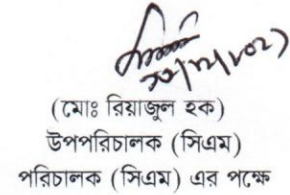 (মোঃ রিয়াজুল হক)
উপপরিচালক (সিএম)
পরিচালক (সিএম) এর পক্ষে